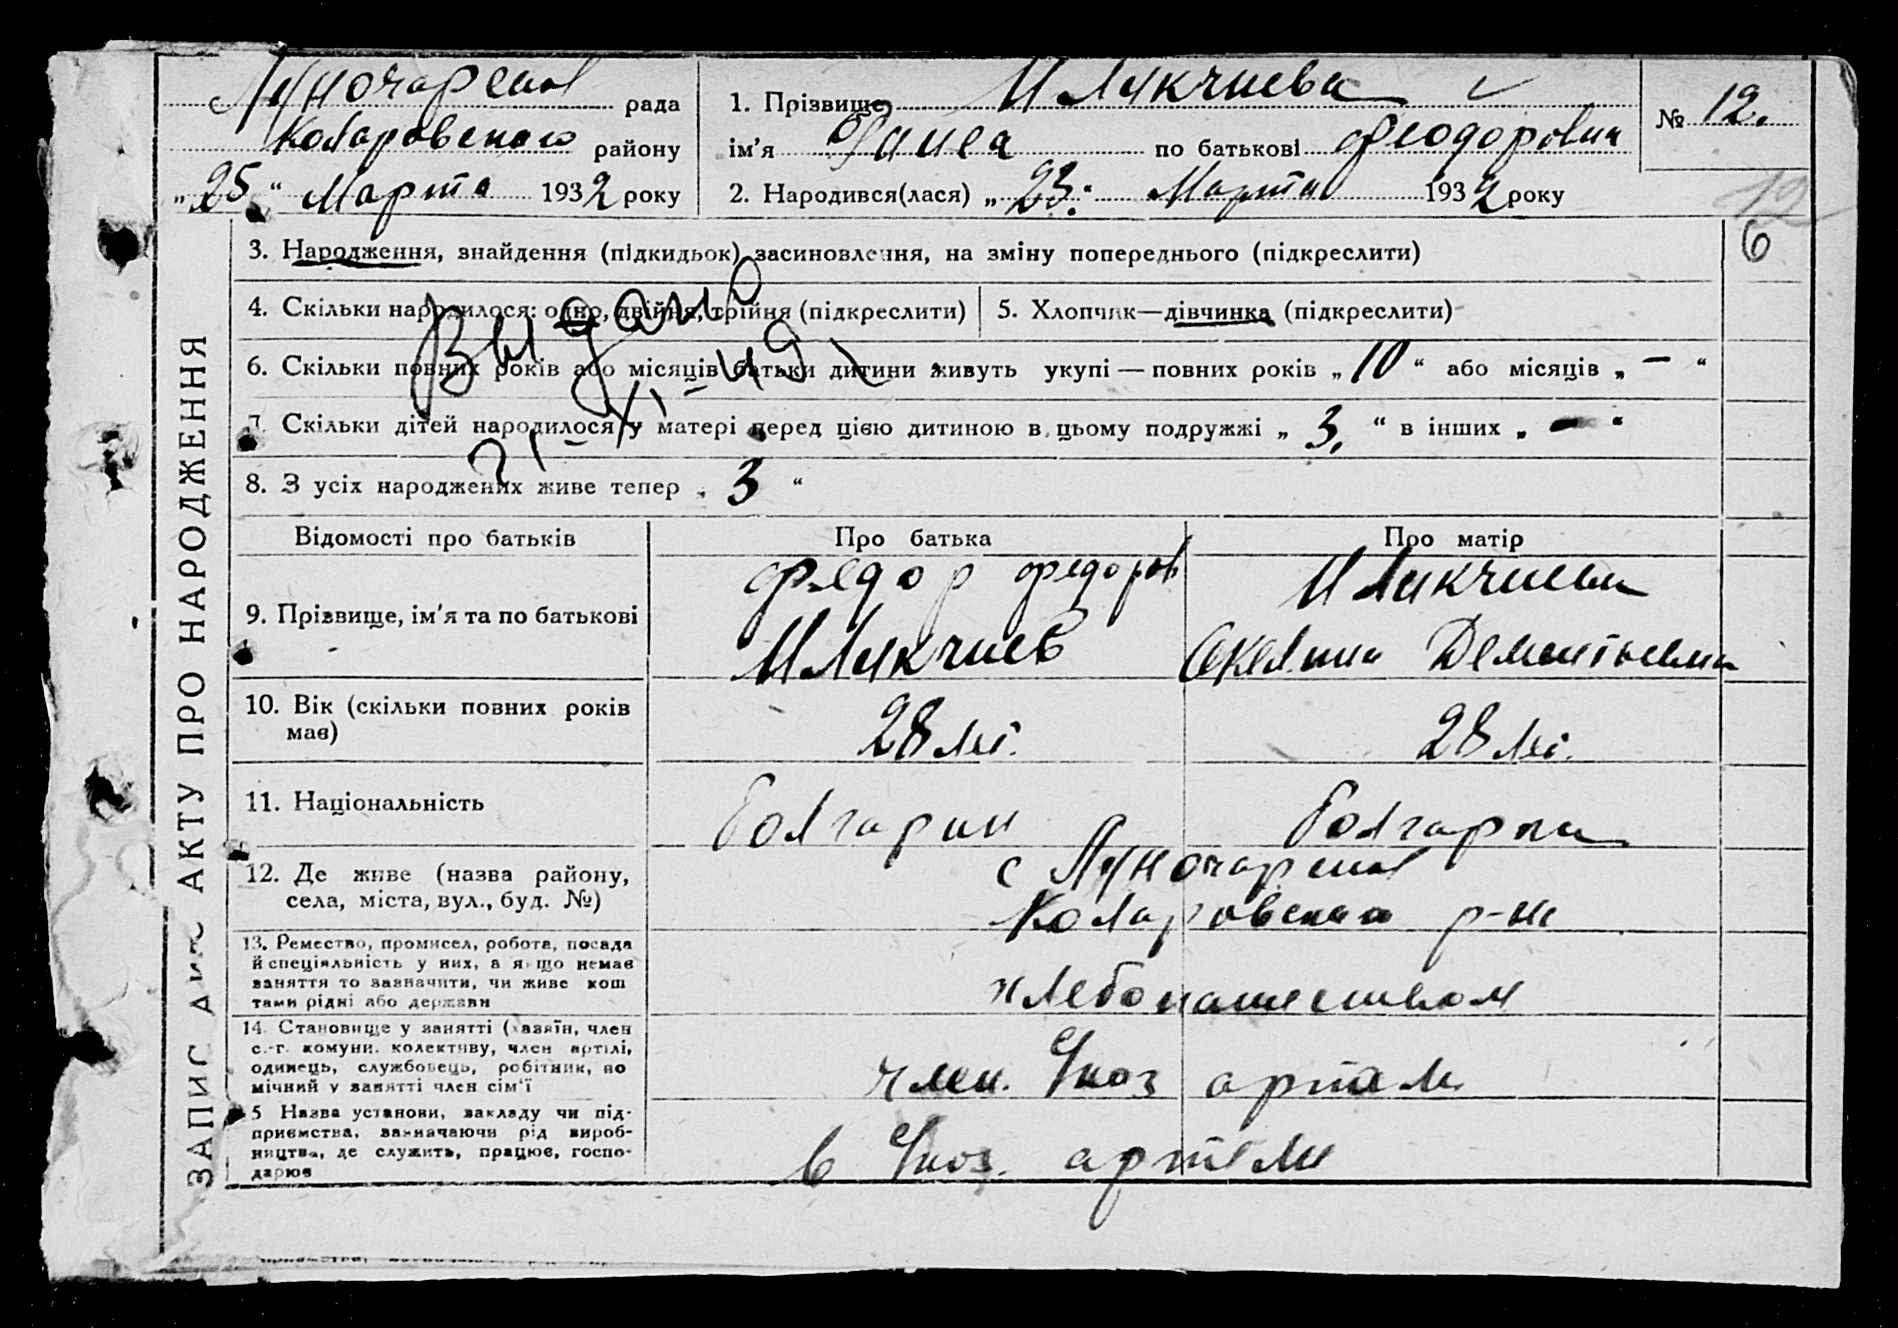 Луночарскол рада
Коларовского району
„25“ Марта 1932 року
1. Прізвище Иликчиева
ім'я по батькові Феодоровна
2. Народився(лася) „23.“ Марта 1932 року
№ 12.
12
6
ЗАПИС АКТУ ПРО НАРОДЖЕННЯ
3. Народження, знайдення (підкидьок) засиновлення, на зміну попереднього (підкреслити)
4. Скільки народилося: одно, двійня, трійня (підкреслити)
5. Хлопчик—дівчинка (підкреслити)
6. Скільки повних років або місяців батьки дитини живуть укупі — повних років „10“ або місяців „—“
7. Скільки дітей народилося у матері перед цією дитиною в цьому подружжі „3.“ в інших „—“
8. З усіх народжених живе тепер „3“
Выдано
21-XI-49
Відомості про батьків
Про батька
Про матір
9. Прізвище, ім'я та по батькові
Федор Федоров
Иликчиев
Иликчиева
Дементьевна
10. Вік (скільки повних років
має)
28 лет.
28 лет.
11. Національність
болгарин
болгарка
12. Де живе (назва району,
села, міста, вул., буд. №)
с Луночарскол
Коларовского р-на
13. Ремество, промисел, робота, посада
й спеціяльність у них, а якщо немає
заняття то зазначити, чи живе кош
тами рідні або держави
хлебопашеством
14. Становище у занятті (хазяїн, член
с.-г. комуни, колективу, член артілі,
одинець, службовець, робітник, по
мічний у занятті член сім'ї
член. артели
5 Назва установи, закладу чи під-
приємства, зазначаючи рід вироб-
ництва, де служить, працює, госпо-
дарює
в артели